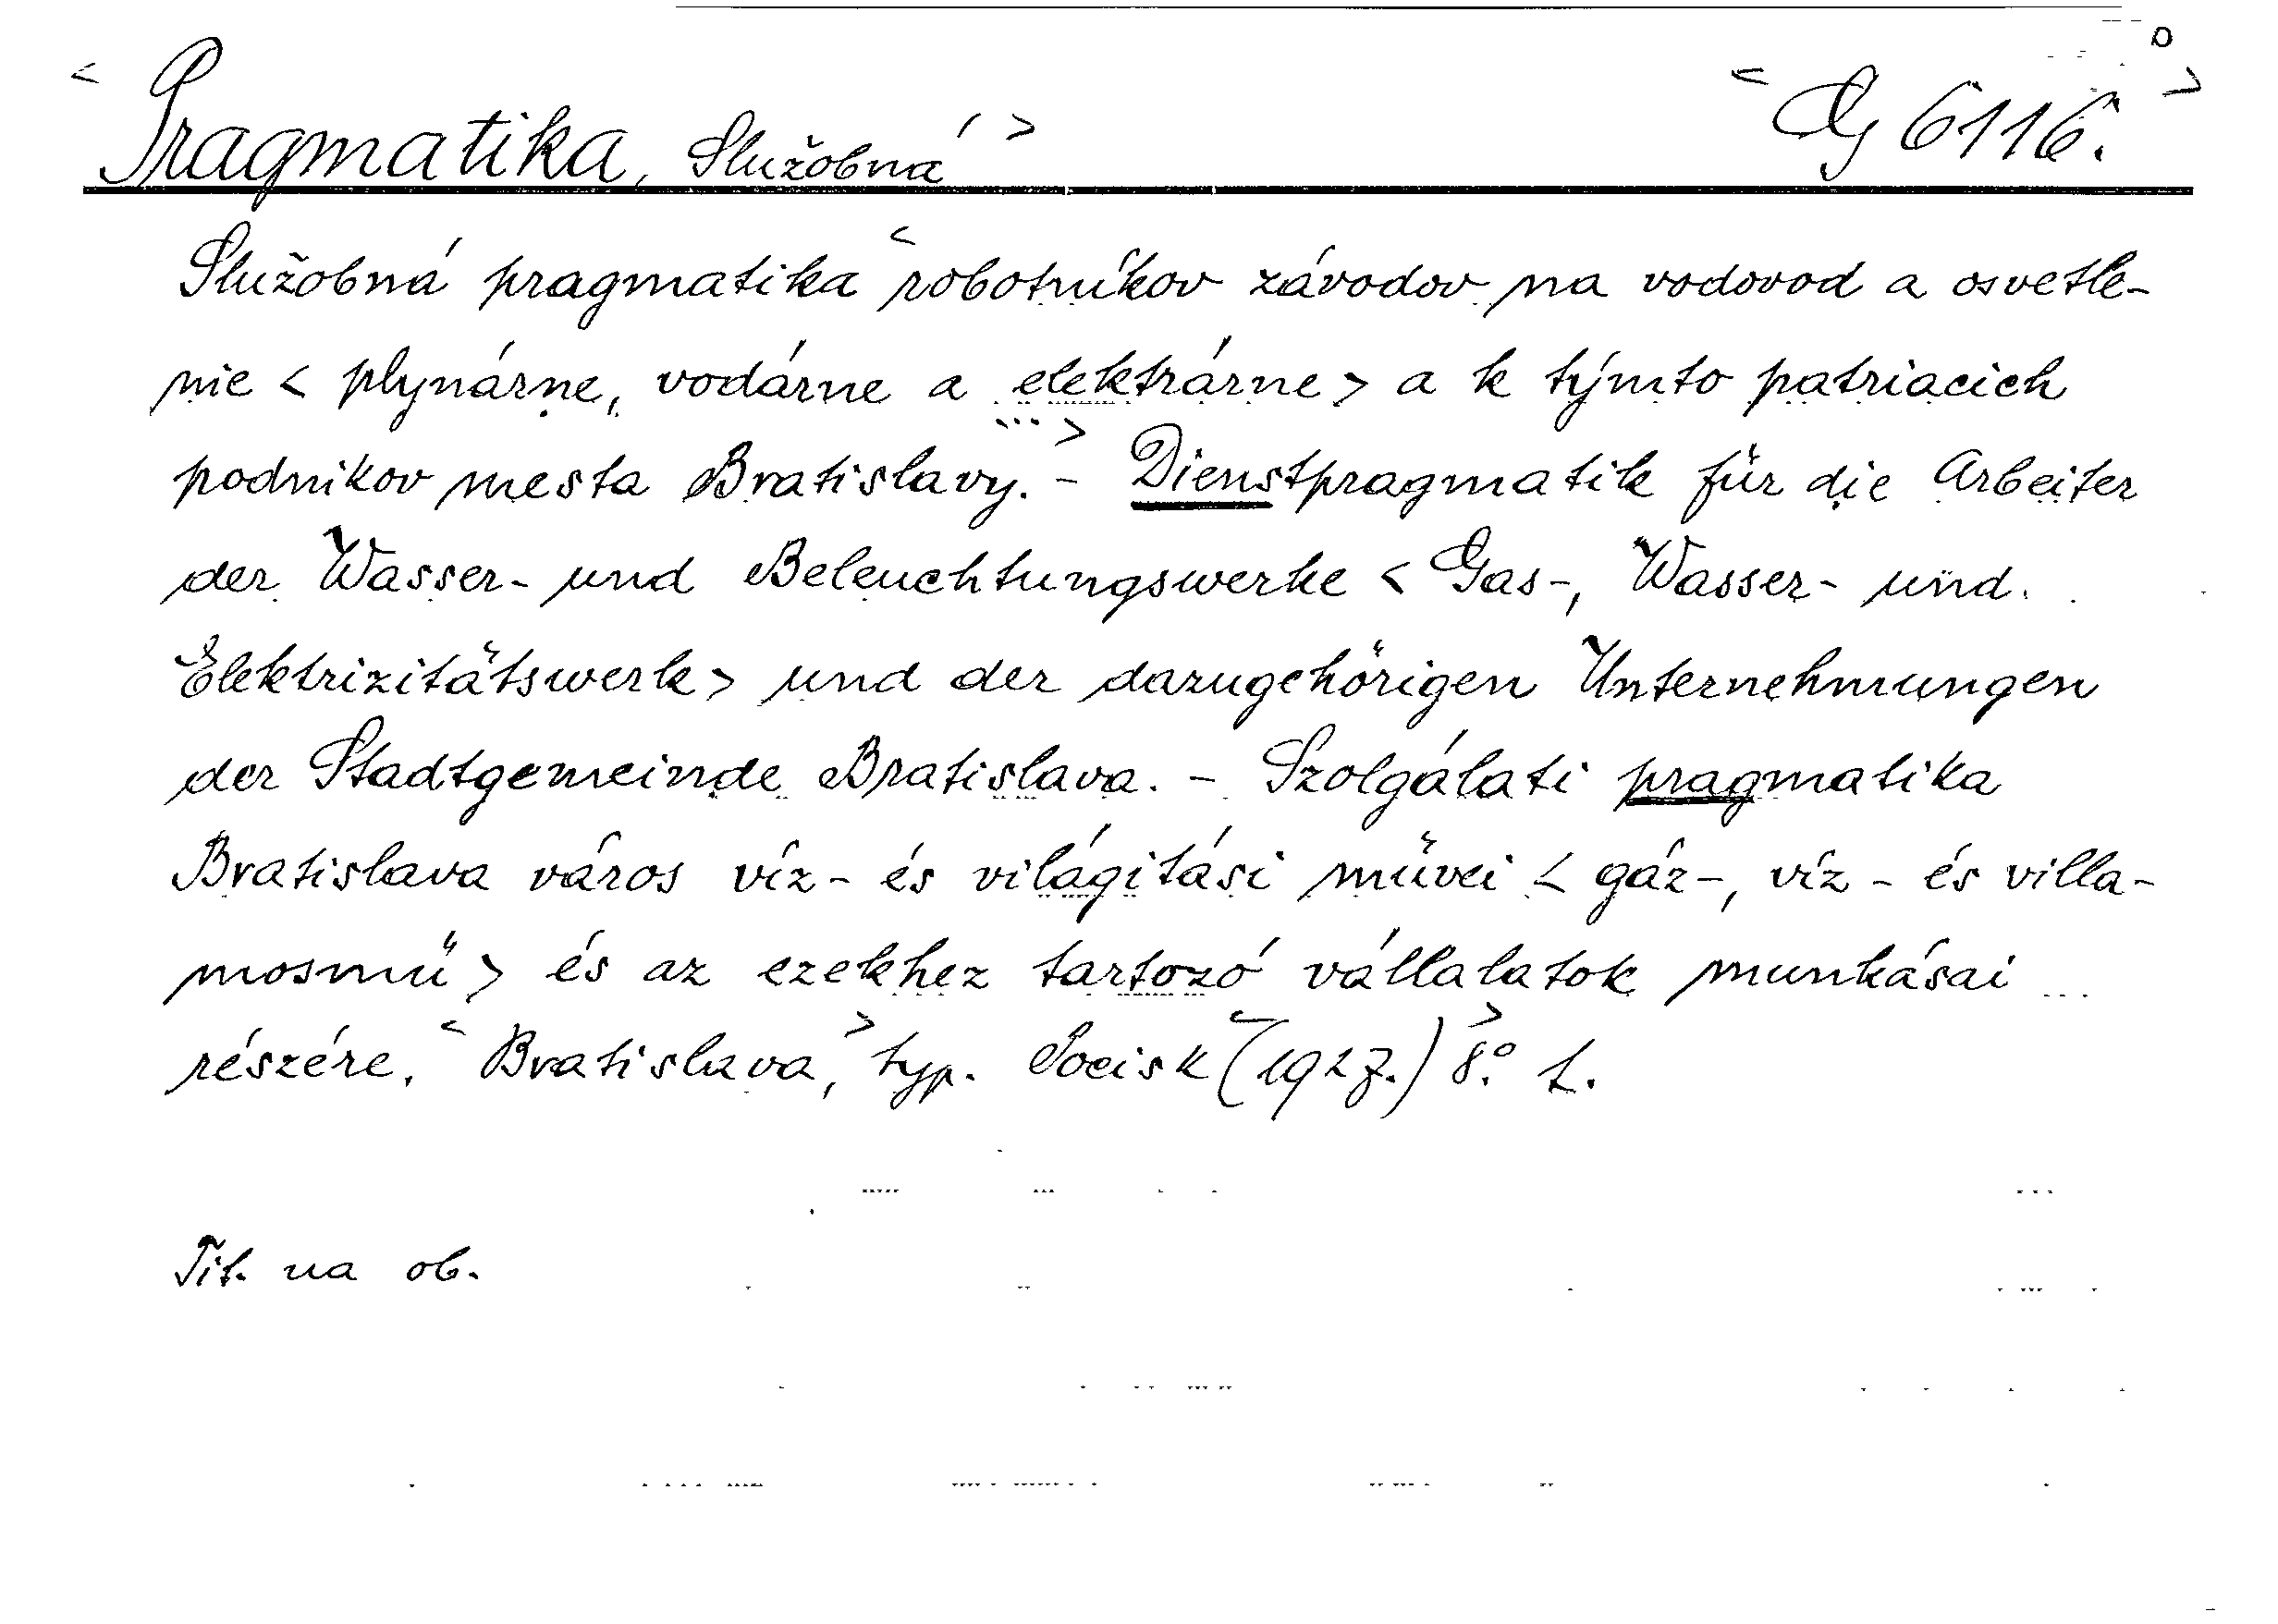 < Pragmatika, Služobná > < G 6116. >
Služobná pragmatika < robotníkov závodov na vodovod a osvetle-
nie < plynárne, vodárne a elektrárne > a k týmto patriacich
podnikov mesta Bratislavy. ... > - Dienstpragmatik für die Arbeiter
der Wasser- und Beleuchtungswerke < Gas-, Wasser- und
Elektrizitätswerk > und der dazugehörigen Unternehmungen
der Stadtgemeinde Bratislava. - Szolgálati pragmatika
Bratislava város víz- és világitási müvei < gáz-, víz- és villa-
mosmü > és az ezekhez tartozó vállalatok munkásai
részére. < Bratislava, > typ. Socisk < (1927.) > 8.° L.
Tit. na ob.